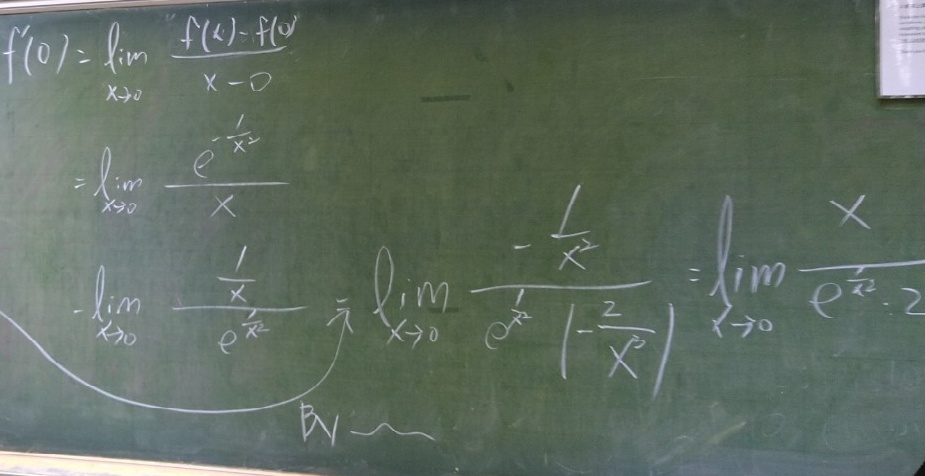 f'(0) = lim x→0 f(x)-f(0) / x-0
= lim x→0 e^{-1/x²} / x
= lim x→0 (1/x) / e^{1/x²} = lim x→0 (-1/x²) / e^{1/x²} (-2/x³) = lim x→0 x / e^{1/x²} · 2
By